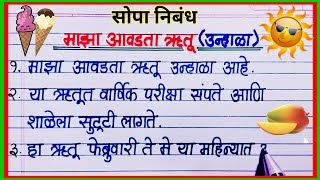 सोपा निबंध
माझा आवडता ऋतू (उन्हाळा)
१. माझा आवडता ऋतू उन्हाळा आहे.
२. या ऋतूत वार्षिक परीक्षा संपते आणि
शाळेला सुट्टी लागते.
३. हा ऋतू फेब्रुवारी ते मे या महिन्यात